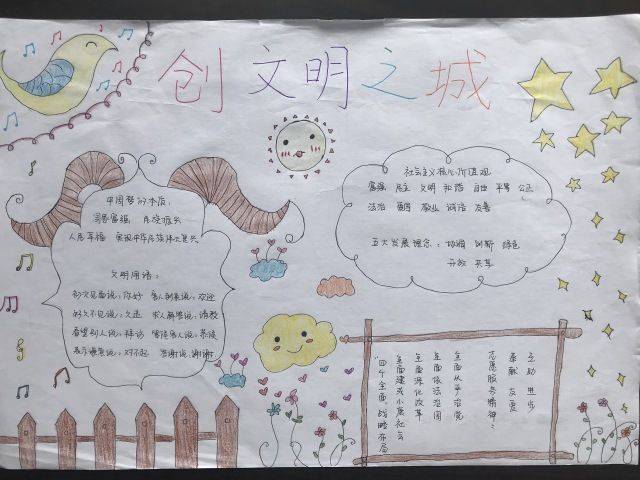 创文明之城
中国梦的本质：
国家富强 民族振兴
人民幸福 实现中华民族伟大复兴
文明用语：
初次见面说：你好 客人到来说：欢迎
好久不见说：久违 求人解答说：请教
看望别人说：拜访 等待客人说：恭候
表示歉意说：对不起 答谢说：谢谢
社会主义核心价值观
富强 民主 文明 和谐 自由 平等 公正
法治 爱国 敬业 诚信 友善
五大发展理念：协调 创新 绿色
开放 共享
互助 进步
奉献 友爱
志愿服务精神：
全面从严治党
全面依法治国
全面深化改革
全面建成小康社会
"四个全面"战略布局